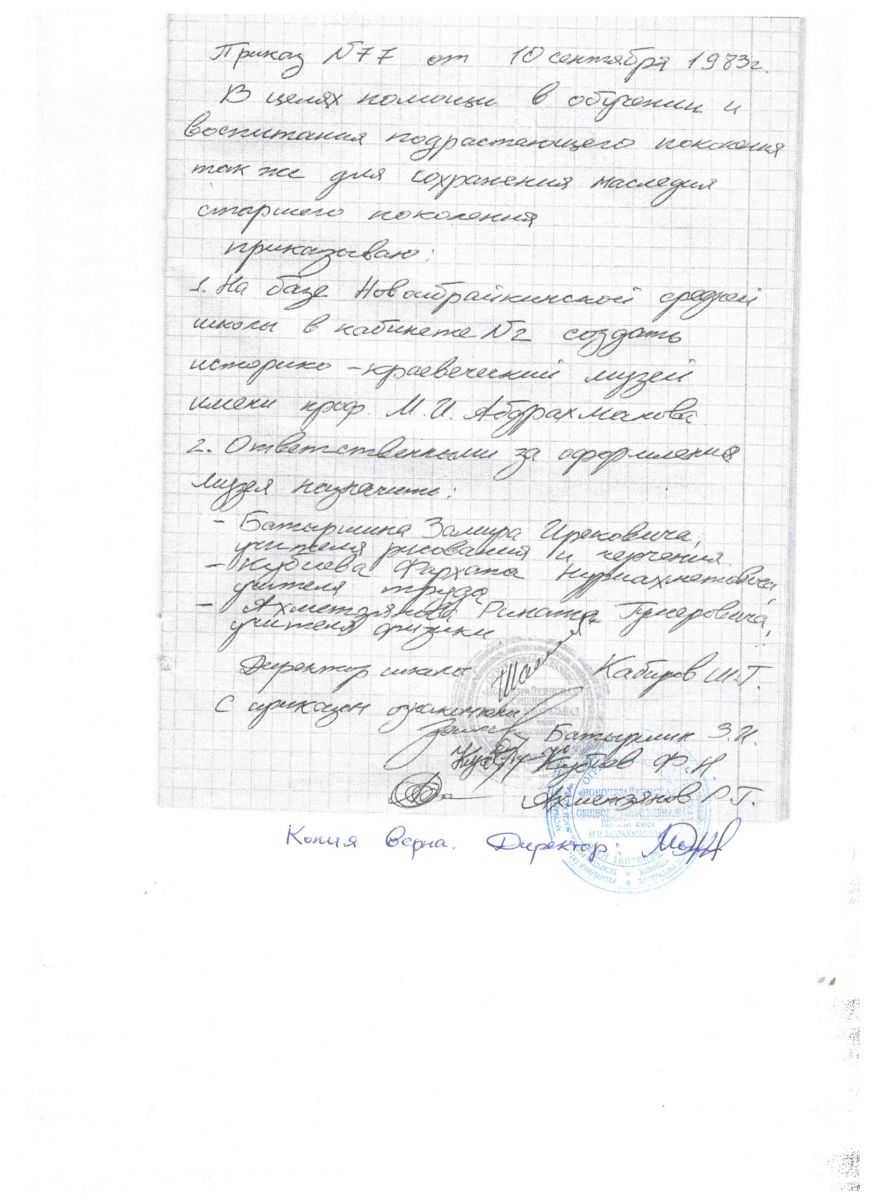 Приказ N77 от 10 сентября 1983г.
В целях помощи в обучении и
воспитания подрастающего поколения
так же для сохранения наследия
старшего поколения
приказываю:
1. На базе Новоибрайкинской средней
школы в кабинете N2 создать
историко-краевеческий музей
имени проф. М.И. Абдрахманова
2. Ответственными за оформления
музея назначить:
- Батыршина Замира Ирековича,
учителя рисования и черчения
- Кубиева Фархата Нурмахметовича,
учителя трудо
- Ахметзянова Рината Гумеровича,
учителя физики.
Директор школы Кабиров Ш.Г.
С приказом ознакомлены
Батыршин З.И.
Кубиев Ф.Н.
Ахметзянов Р.Г.
Копия верна. Директор: